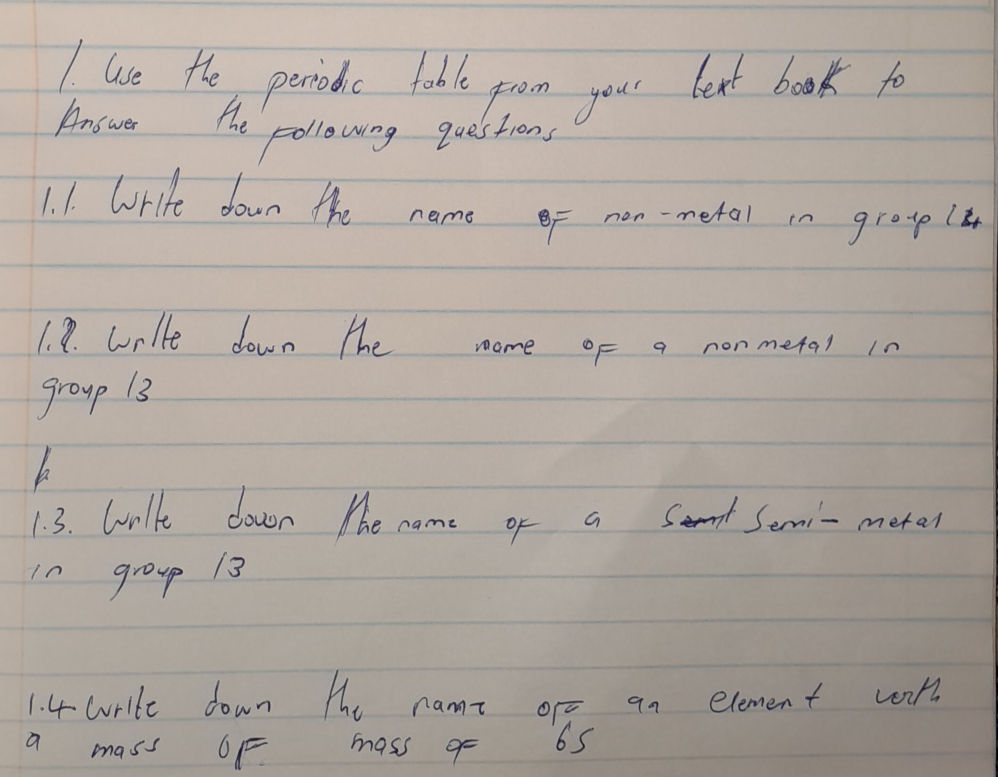 1. Use the periodic table from your text book to
Answer the following questions
1.1. Write down the name of non-metal in group 14
1.2. Write down the name of a nonmetal in
group 13
1.3. Write down the name of a Semi-metal
in group 13
1.4 Write down the name of an element with
a mass of mass of 65